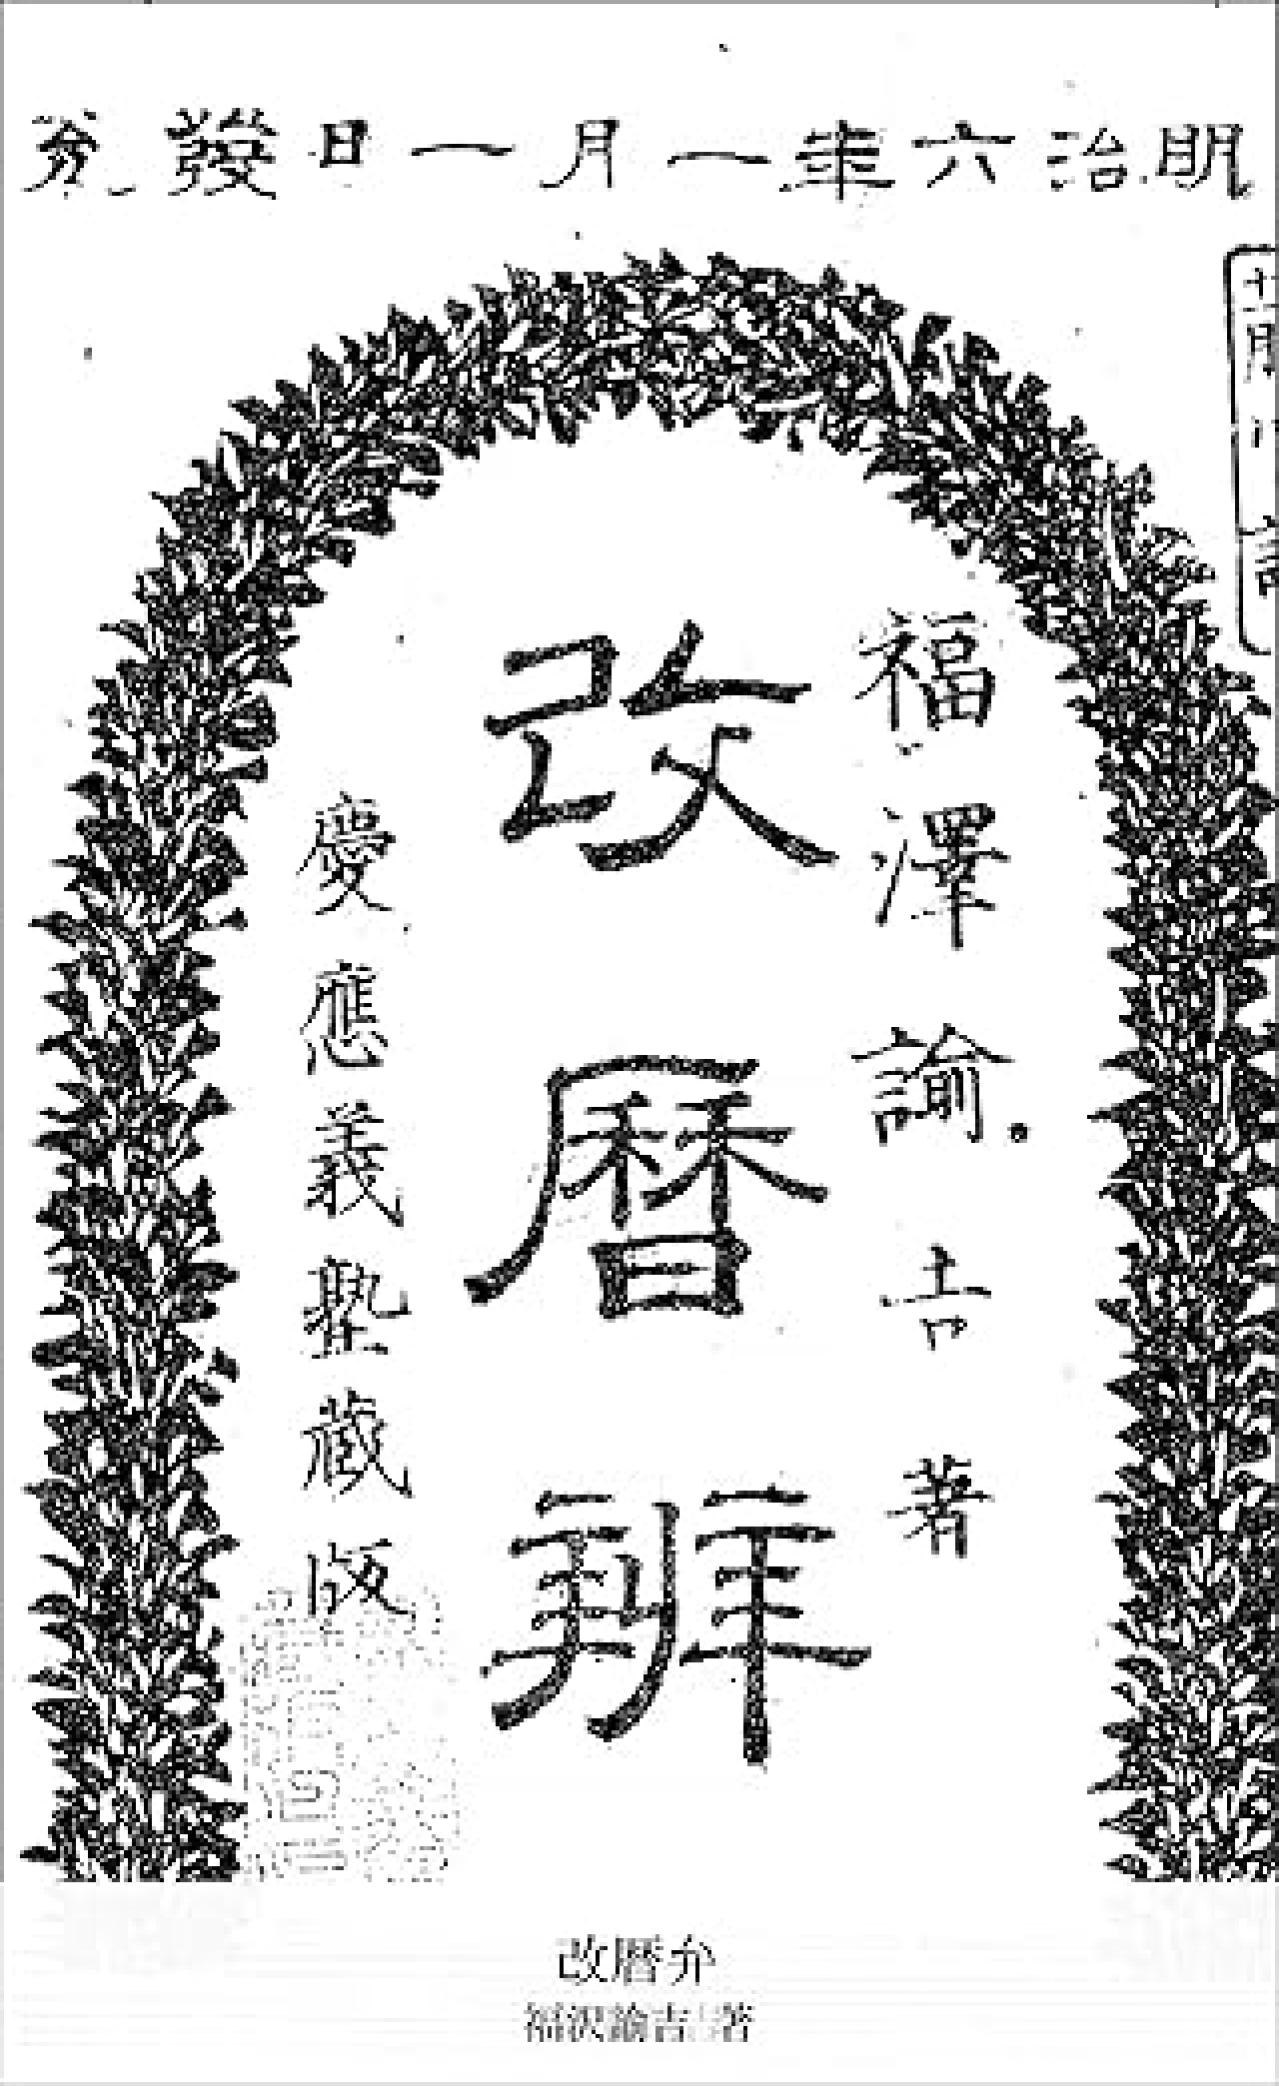 明治六年一月一日發兌
福澤諭吉著
改曆辨
慶應義塾蔵版
改暦弁
福沢諭吉 著